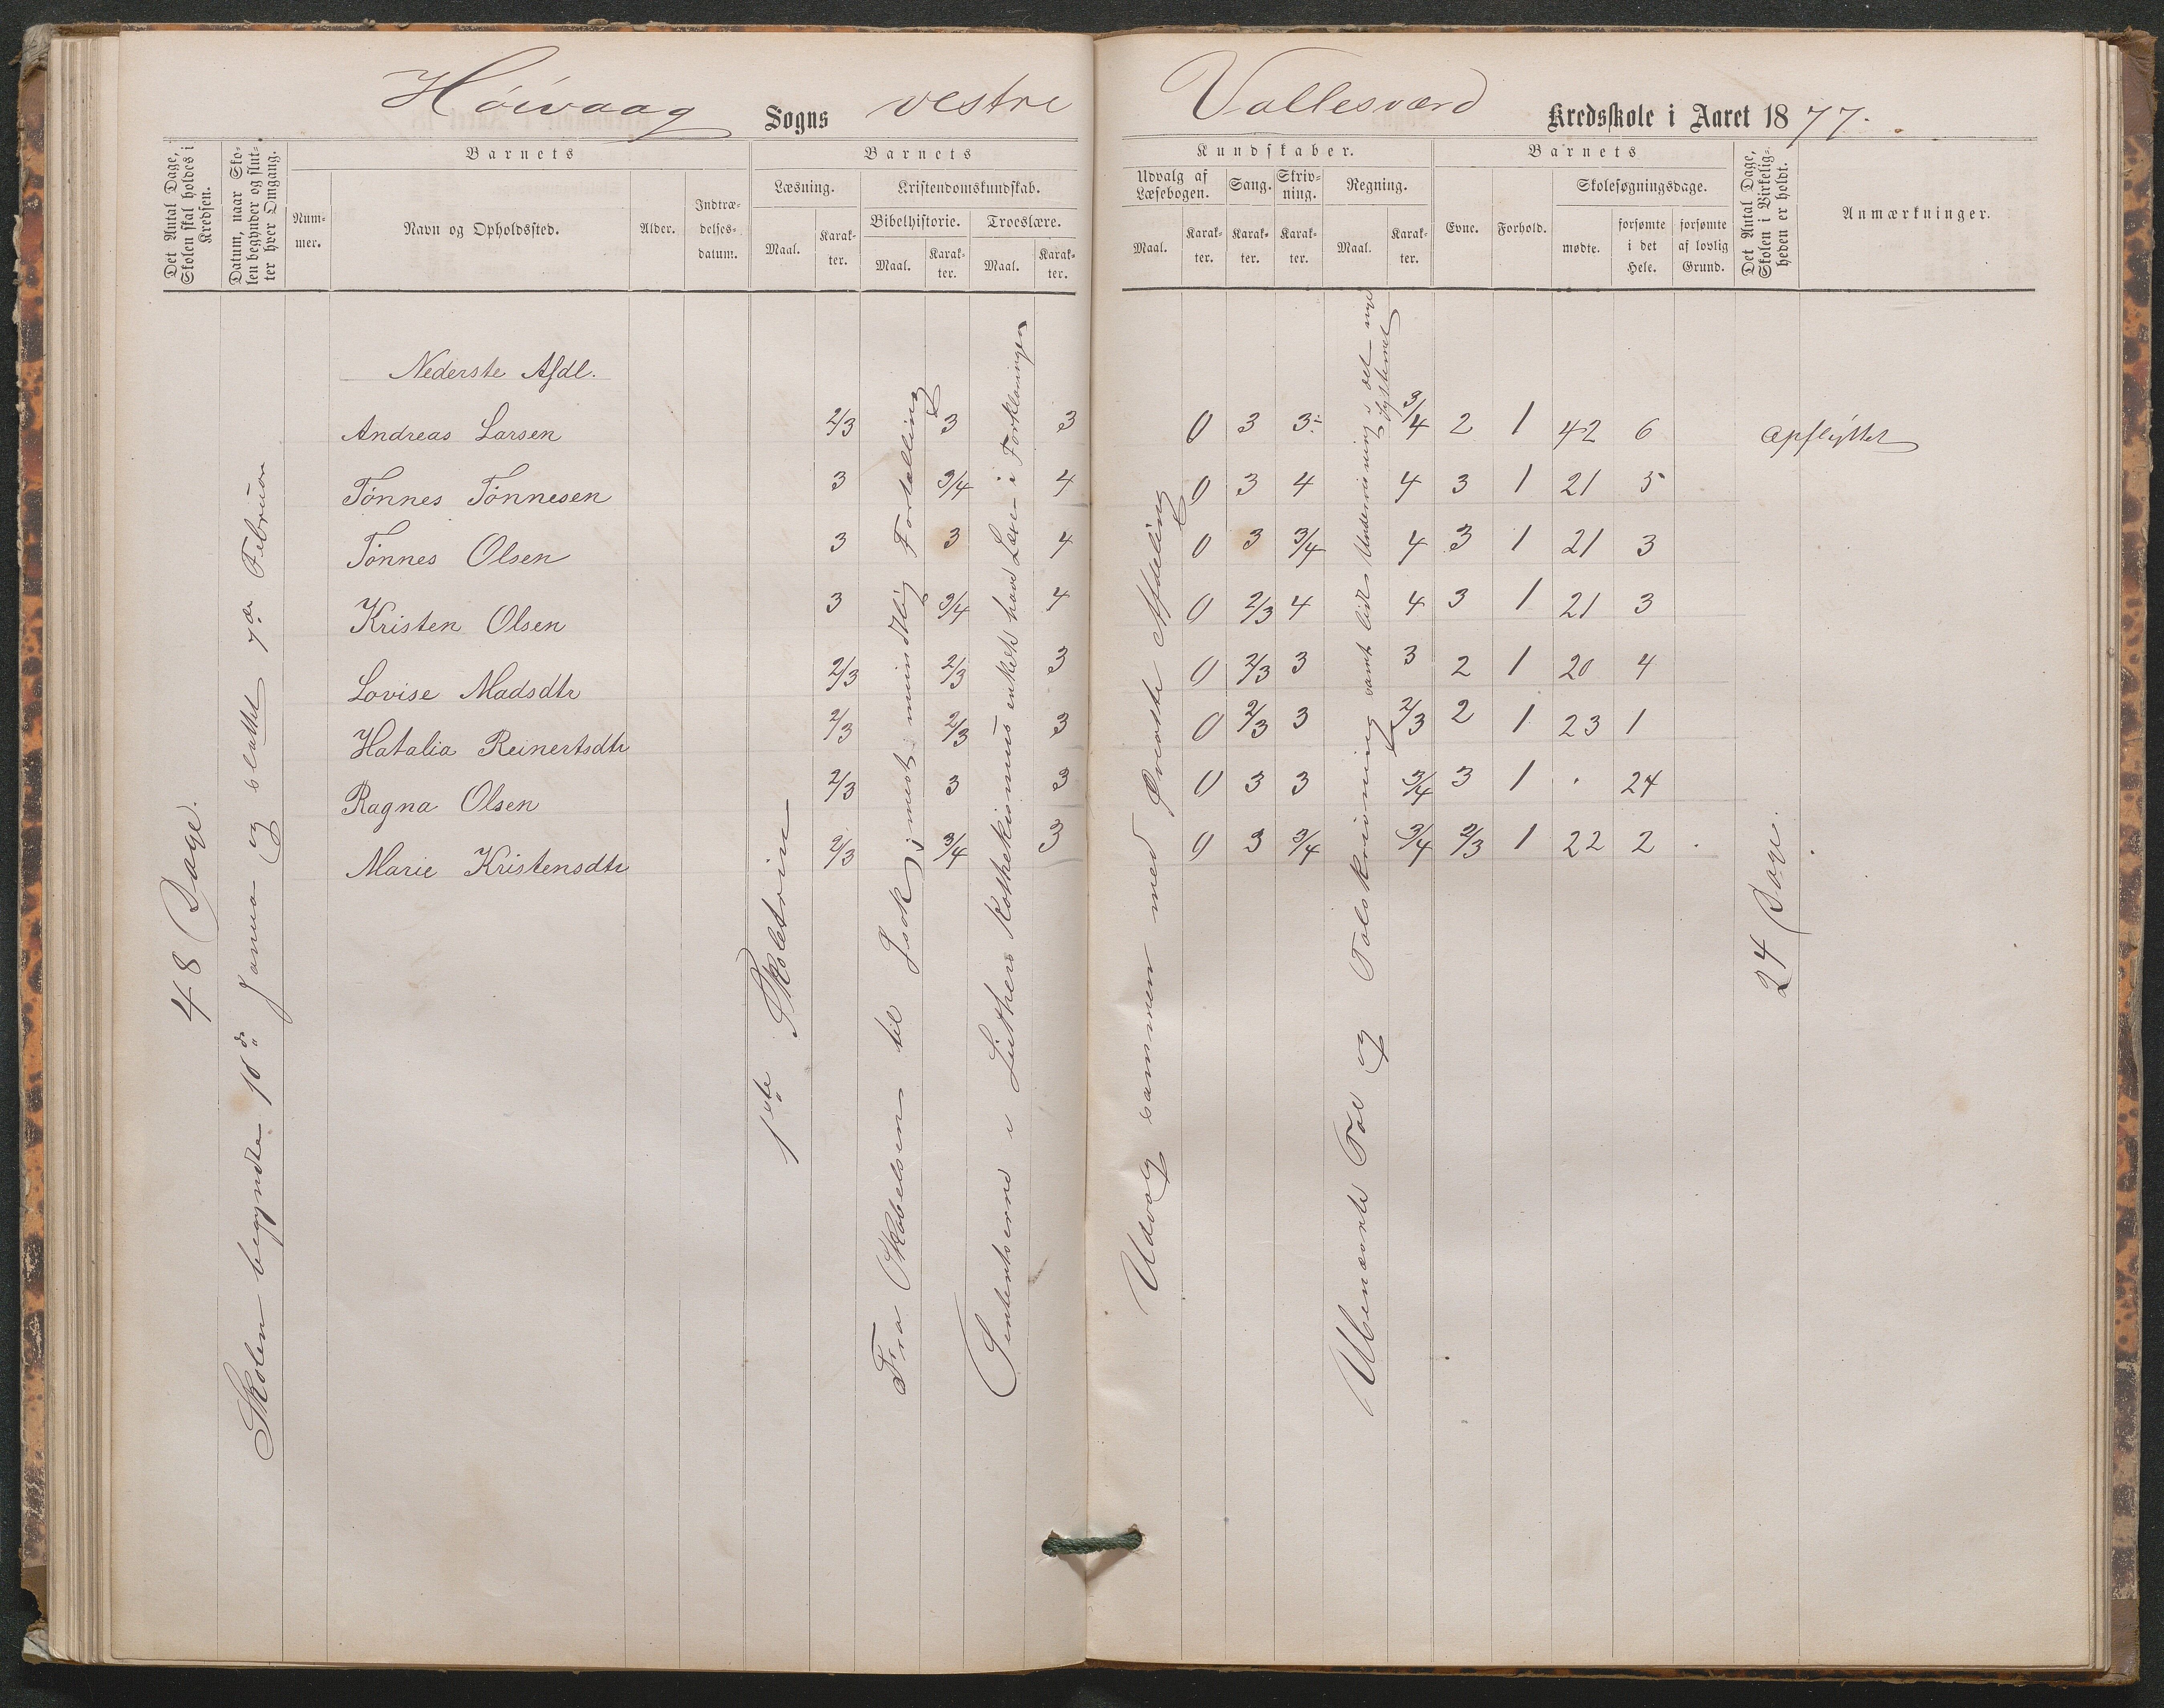 Høivaag Sogns vestre Vallesværd Kredsskole i Aaret 1877.
Det Antal Dage, Skolen skal holdes i Kredsen.
Datum, naar Skolen begynder og slutter hver Omgang.
Barnets
Nummer.
Navn og Opholdssted.
Alder.
Indtrædelsesdatum.
Barnets
Læsning.
Maal.
Karakter.
Kristendomskundskab.
Bibelhistorie.
Maal.
Karakter.
Troeslære.
Maal.
Karakter.
Kundskaber.
Udvalg af Læsebogen.
Maal.
Karakter.
Sang.
Karakter.
Skrivning.
Karakter.
Regning.
Maal.
Karakter.
Barnets
Evne.
Forhold.
Skolesøgningsdage.
mødte.
forsømte i det Hele.
forsømte af lovlig Grund.
Det Antal Dage, Skolen i Virkeligheden er holdt.
Anmærkninger.
48 Dage.
Skolen begyndte 10de Januar og sluttet 7de Februar
Nederste Afdl.
Andreas Larsen 2/3 3 3 0 3 3÷ 3/4 2 1 42 6 Opflyttet
Tønnes Tønnesen 3 3/4 4 0 3 4 4 3 1 21 5
Tønnes Olsen 3 3 4 0 3 3/4 4 3 1 21 3
Kristen Olsen 3 3/4 4 0 2/3 4 4 3 1 21 3
Lovise Madsdtr 2/3 2/3 3 0 2/3 3 3 2 1 20 4
Hatalia Reinertsdtr 2/3 2/3 3 0 2/3 3 2/3 2 1 23 1
Ragna Olsen 2/3 3 3 0 3 3 3/4 3 1 . 24
Marie Kristensdtr 2/3 3/4 3 0 3 3/4 3/4 2/3 1 22 2
1ste Skoletrin
Fra Skabelsen til Isak; mest mundtlig Fortælling
Sententserne i Luthers Kathekismus enkelte havd Læxe i Forklaringen
Udvalg sammen med Øverste Afdeling
Ubenævnte Tal og Talskrivning samt lidt Undervisning i det nye Systemet
24 Dage.